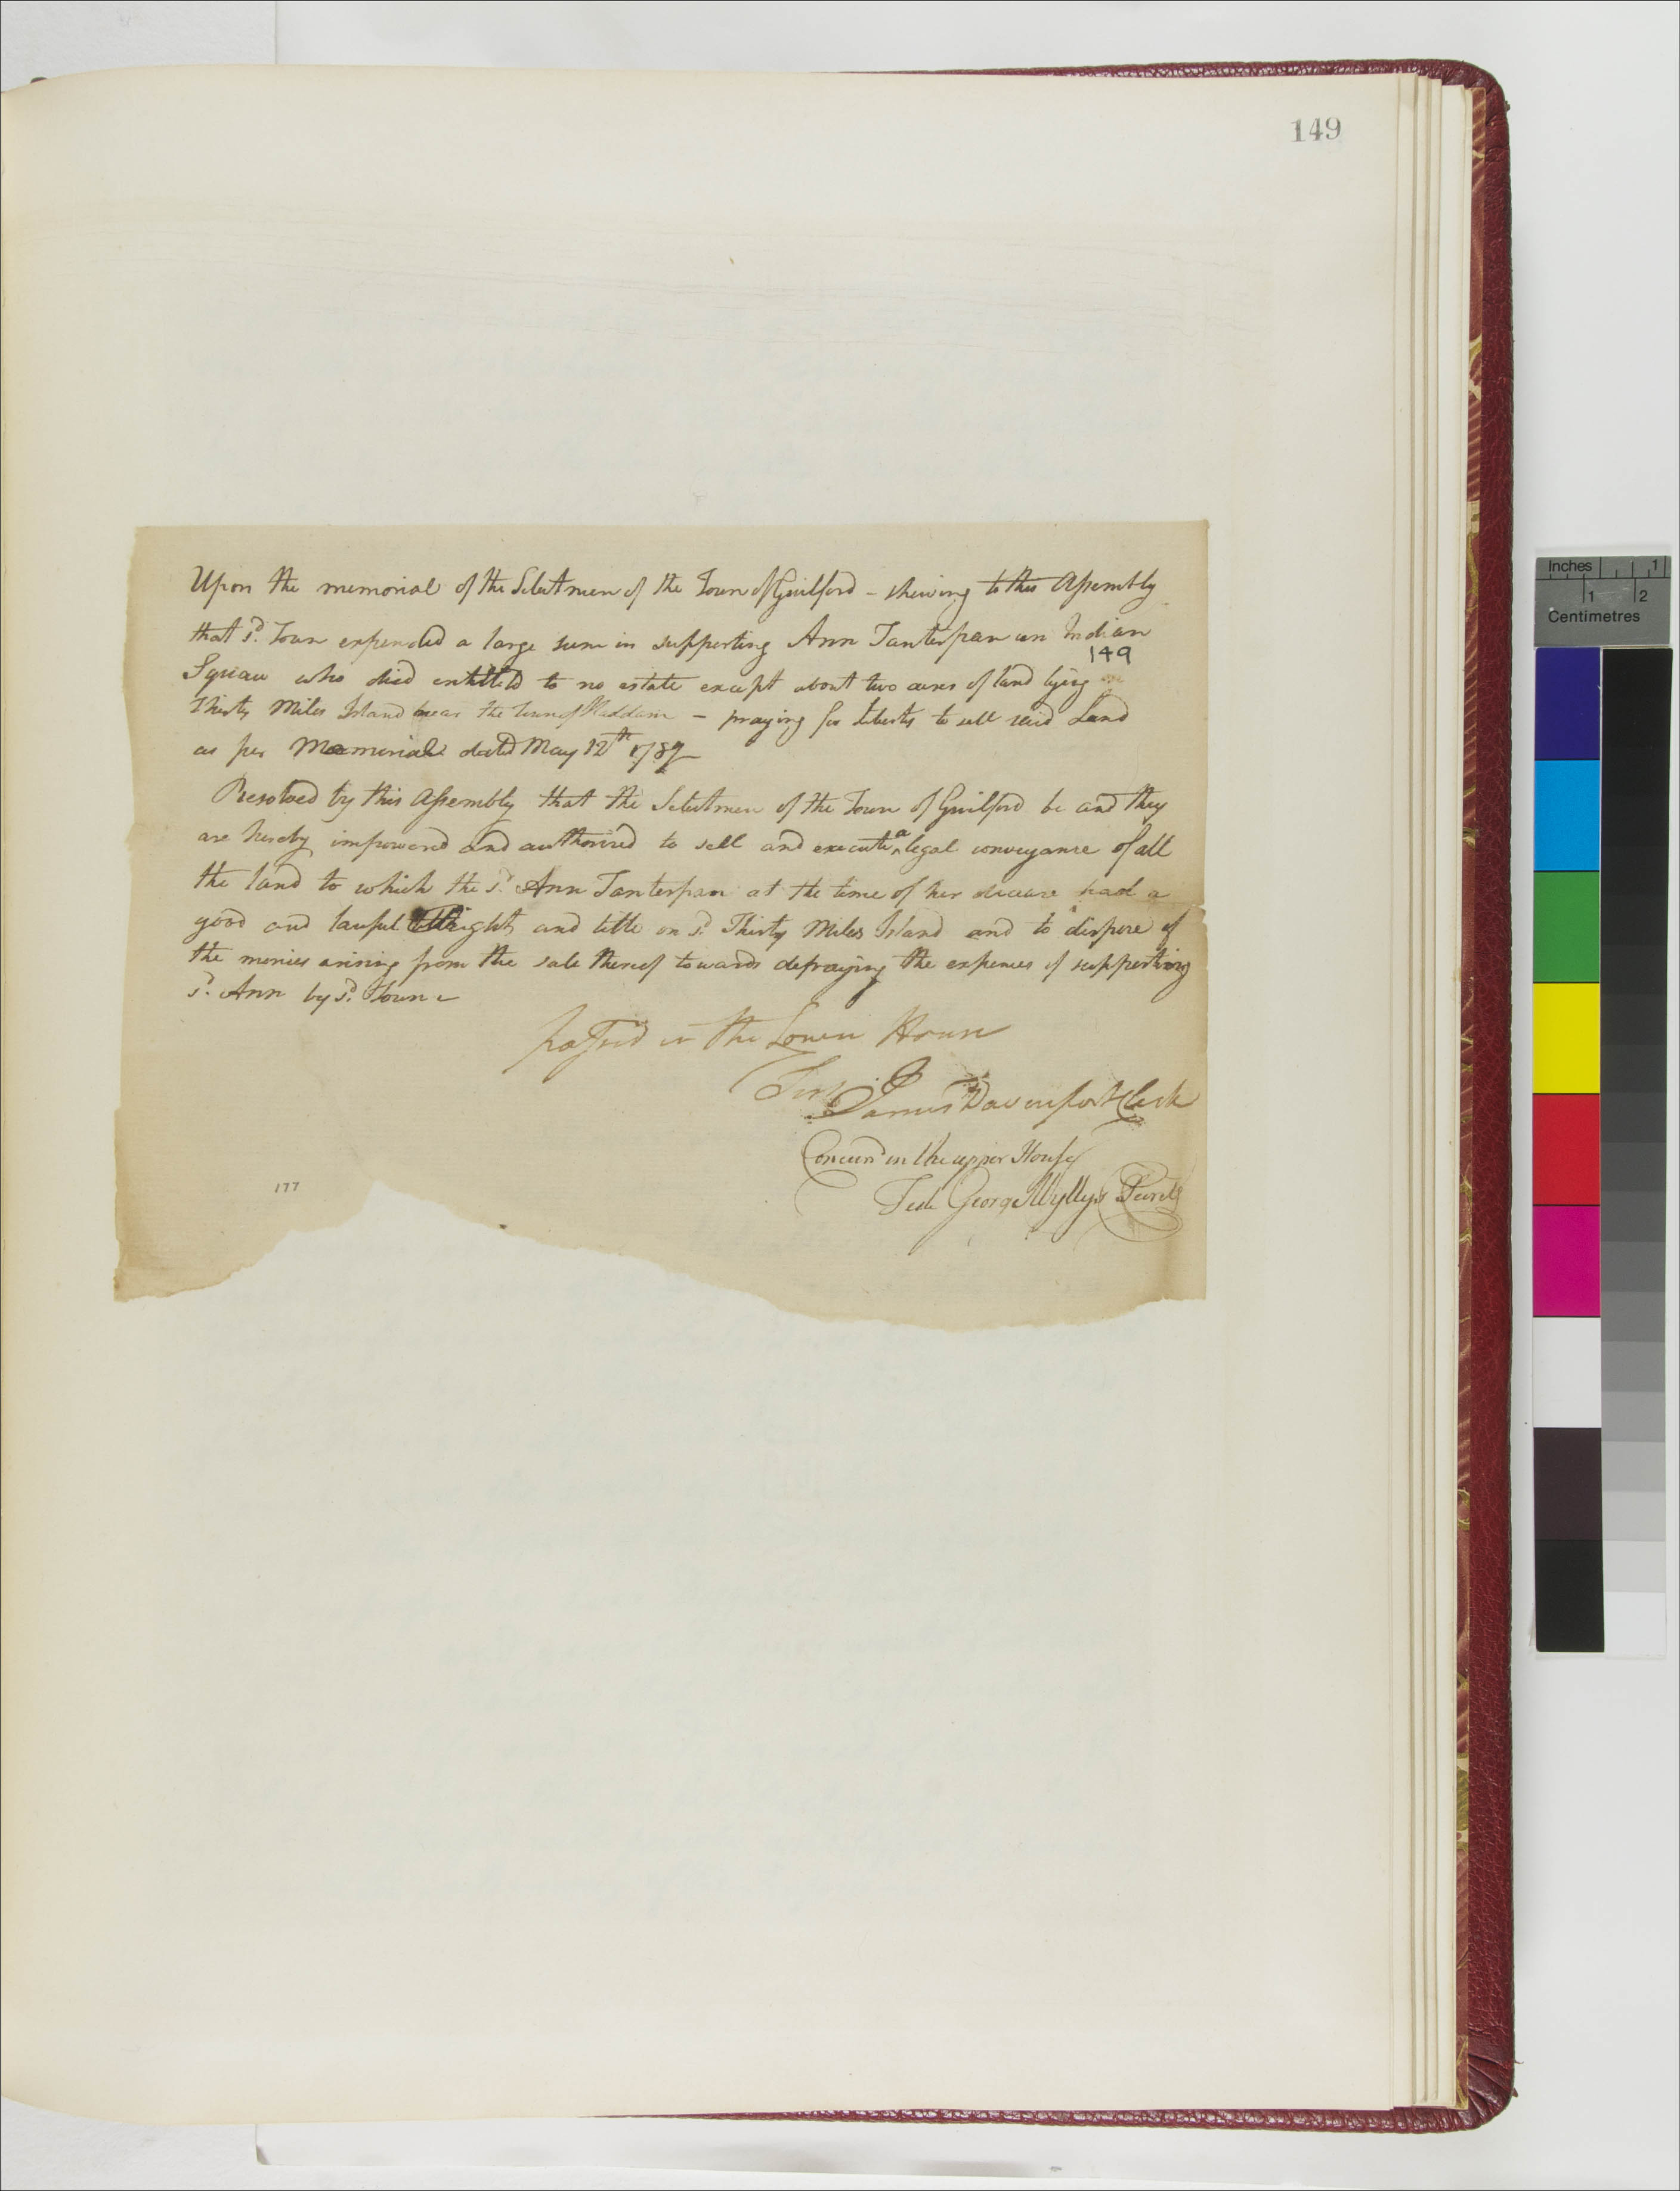 149
Upon the memorial of the Selectmen of the Town of Guilford – shewing to this Assembly
that sd. Town expended a large sum in supporting Ann Tanterpan an Indian
149
Squaw who died entitled to no estate except about two acres of land lying on
Thirty Miles Island near the Town of Haddam – praying for liberty to sell said Land
as per Memorial dated May 12th 1789
Resolved by this Assembly that the Selectmen of the Town of Guilford be and they
are hereby impowered and authorised to sell and execute a legal conveyance of all
the land to which the sd. Ann Tanterpan at the time of her decease had a
good and lawful right and title on sd. Thirty Miles Island and to dispose of
the monies arising from the sale thereof towards defraying the expences of supporting
sd. Ann by sd. Town –
passed in the Lower House
Test James Davenport Clerk
Concurd in the upper House
Teste George Wyllys Secrety
177
Inches 1
1 2
Centimetres